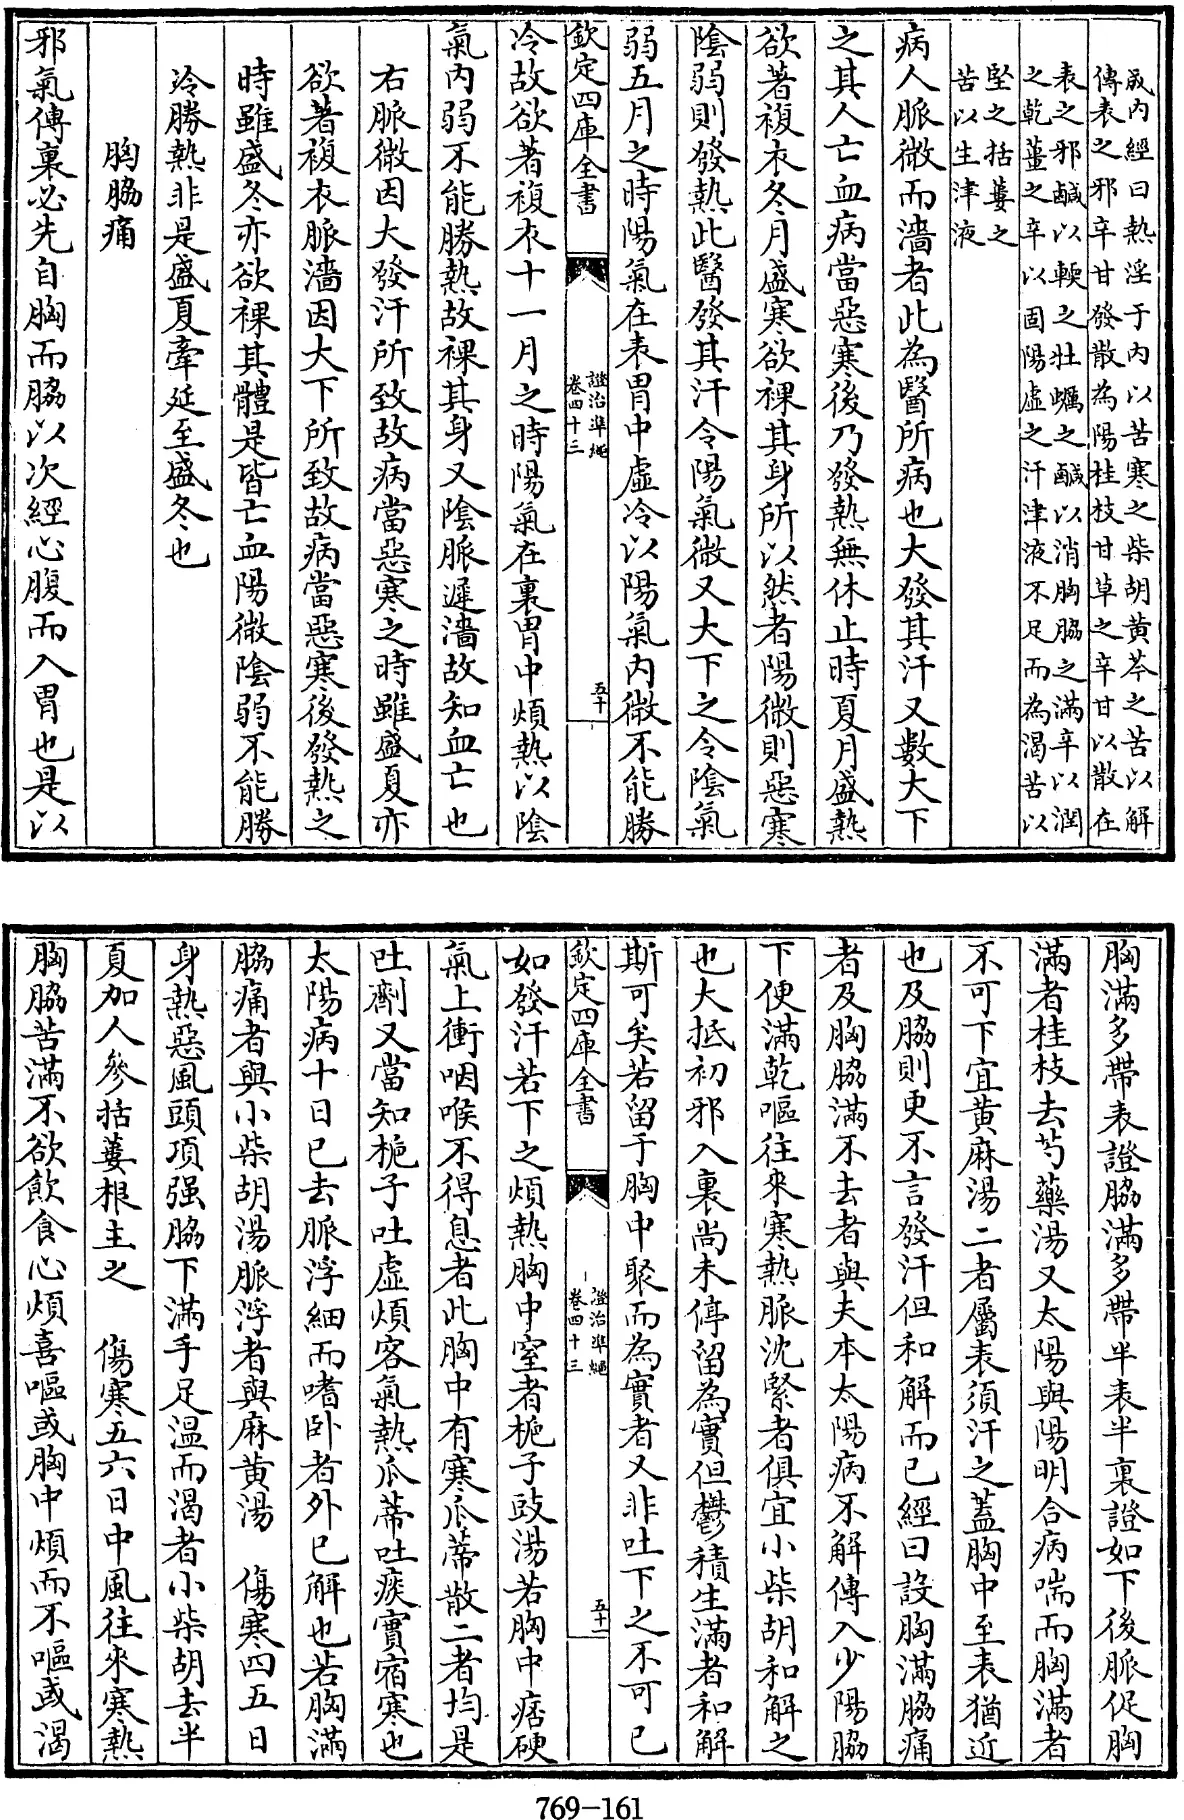 成内經曰熱淫于内以苦寒之柴胡黄芩之苦以解
傳表之邪辛甘發散為陽桂枝甘草之辛甘以散在
表之邪鹹以輭之牡蠣之鹹以消胸脇之滿辛以潤
之乾薑之辛以固陽虚之汗津液不足而為渴苦以
堅之括蔞之
苦以生津液
病人脈微而濇者此為醫所病也大發其汗又數大下
之其人亡血病當惡寒後乃發熱無休止時夏月盛熱
欲著複衣冬月盛寒欲裸其身所以然者陽微則惡寒
陰弱則發熱此醫發其汗令陽氣微又大下之令陰氣
弱五月之時陽氣在表胃中虚冷以陽氣内微不能勝
欽定四庫全書
證治準繩
卷四十三
五十
冷故欲著複衣十一月之時陽氣在裏胃中煩熱以陰
氣内弱不能勝熱故裸其身又陰脈遲濇故知血亡也
右脈微因大發汗所致故病當惡寒之時雖盛夏亦
欲著複衣脈濇因大下所致故病當惡寒後發熱之
時雖盛冬亦欲裸其體是皆亡血陽微陰弱不能勝
冷勝熱非是盛夏牽延至盛冬也
胸脇痛
邪氣傳裏必先自胸而脇以次經心腹而入胃也是以
胸滿多帶表證脇滿多帶半表半裏證如下後脈促胸
滿者桂枝去芍藥湯又太陽與陽明合病喘而胸滿者
不可下宜黄麻湯二者屬表須汗之蓋胸中至表猶近
也及脇則更不言發汗但和解而已經曰設胸滿脇痛
者及胸脇滿不去者與夫本太陽病不解傳入少陽脇
下便滿乾嘔往來寒熱脈沈緊者俱宜小柴胡和解之
也大抵初邪入裏尚未停留為實但鬱積生滿者和解
斯可矣若留于胸中聚而為實者又非吐下之不可已
欽定四庫全書
證治準繩
卷四十三
五十一
如發汗若下之煩熱胸中窒者梔子豉湯若胸中痞硬
氣上衝咽喉不得息者此胸中有寒瓜蒂散二者均是
吐劑又當知梔子吐虚煩客氣熱瓜蒂吐痰實宿寒也
太陽病十日已去脈浮細而嗜卧者外已解也若胸滿
脇痛者與小柴胡湯脈浮者與麻黄湯　傷寒四五日
身熱惡風頭項强脇下滿手足温而渴者小柴胡去半
夏加人參括蔞根主之　傷寒五六日中風往來寒熱
胸脇苦滿不欲飲食心煩喜嘔或胸中煩而不嘔或渴
769-161